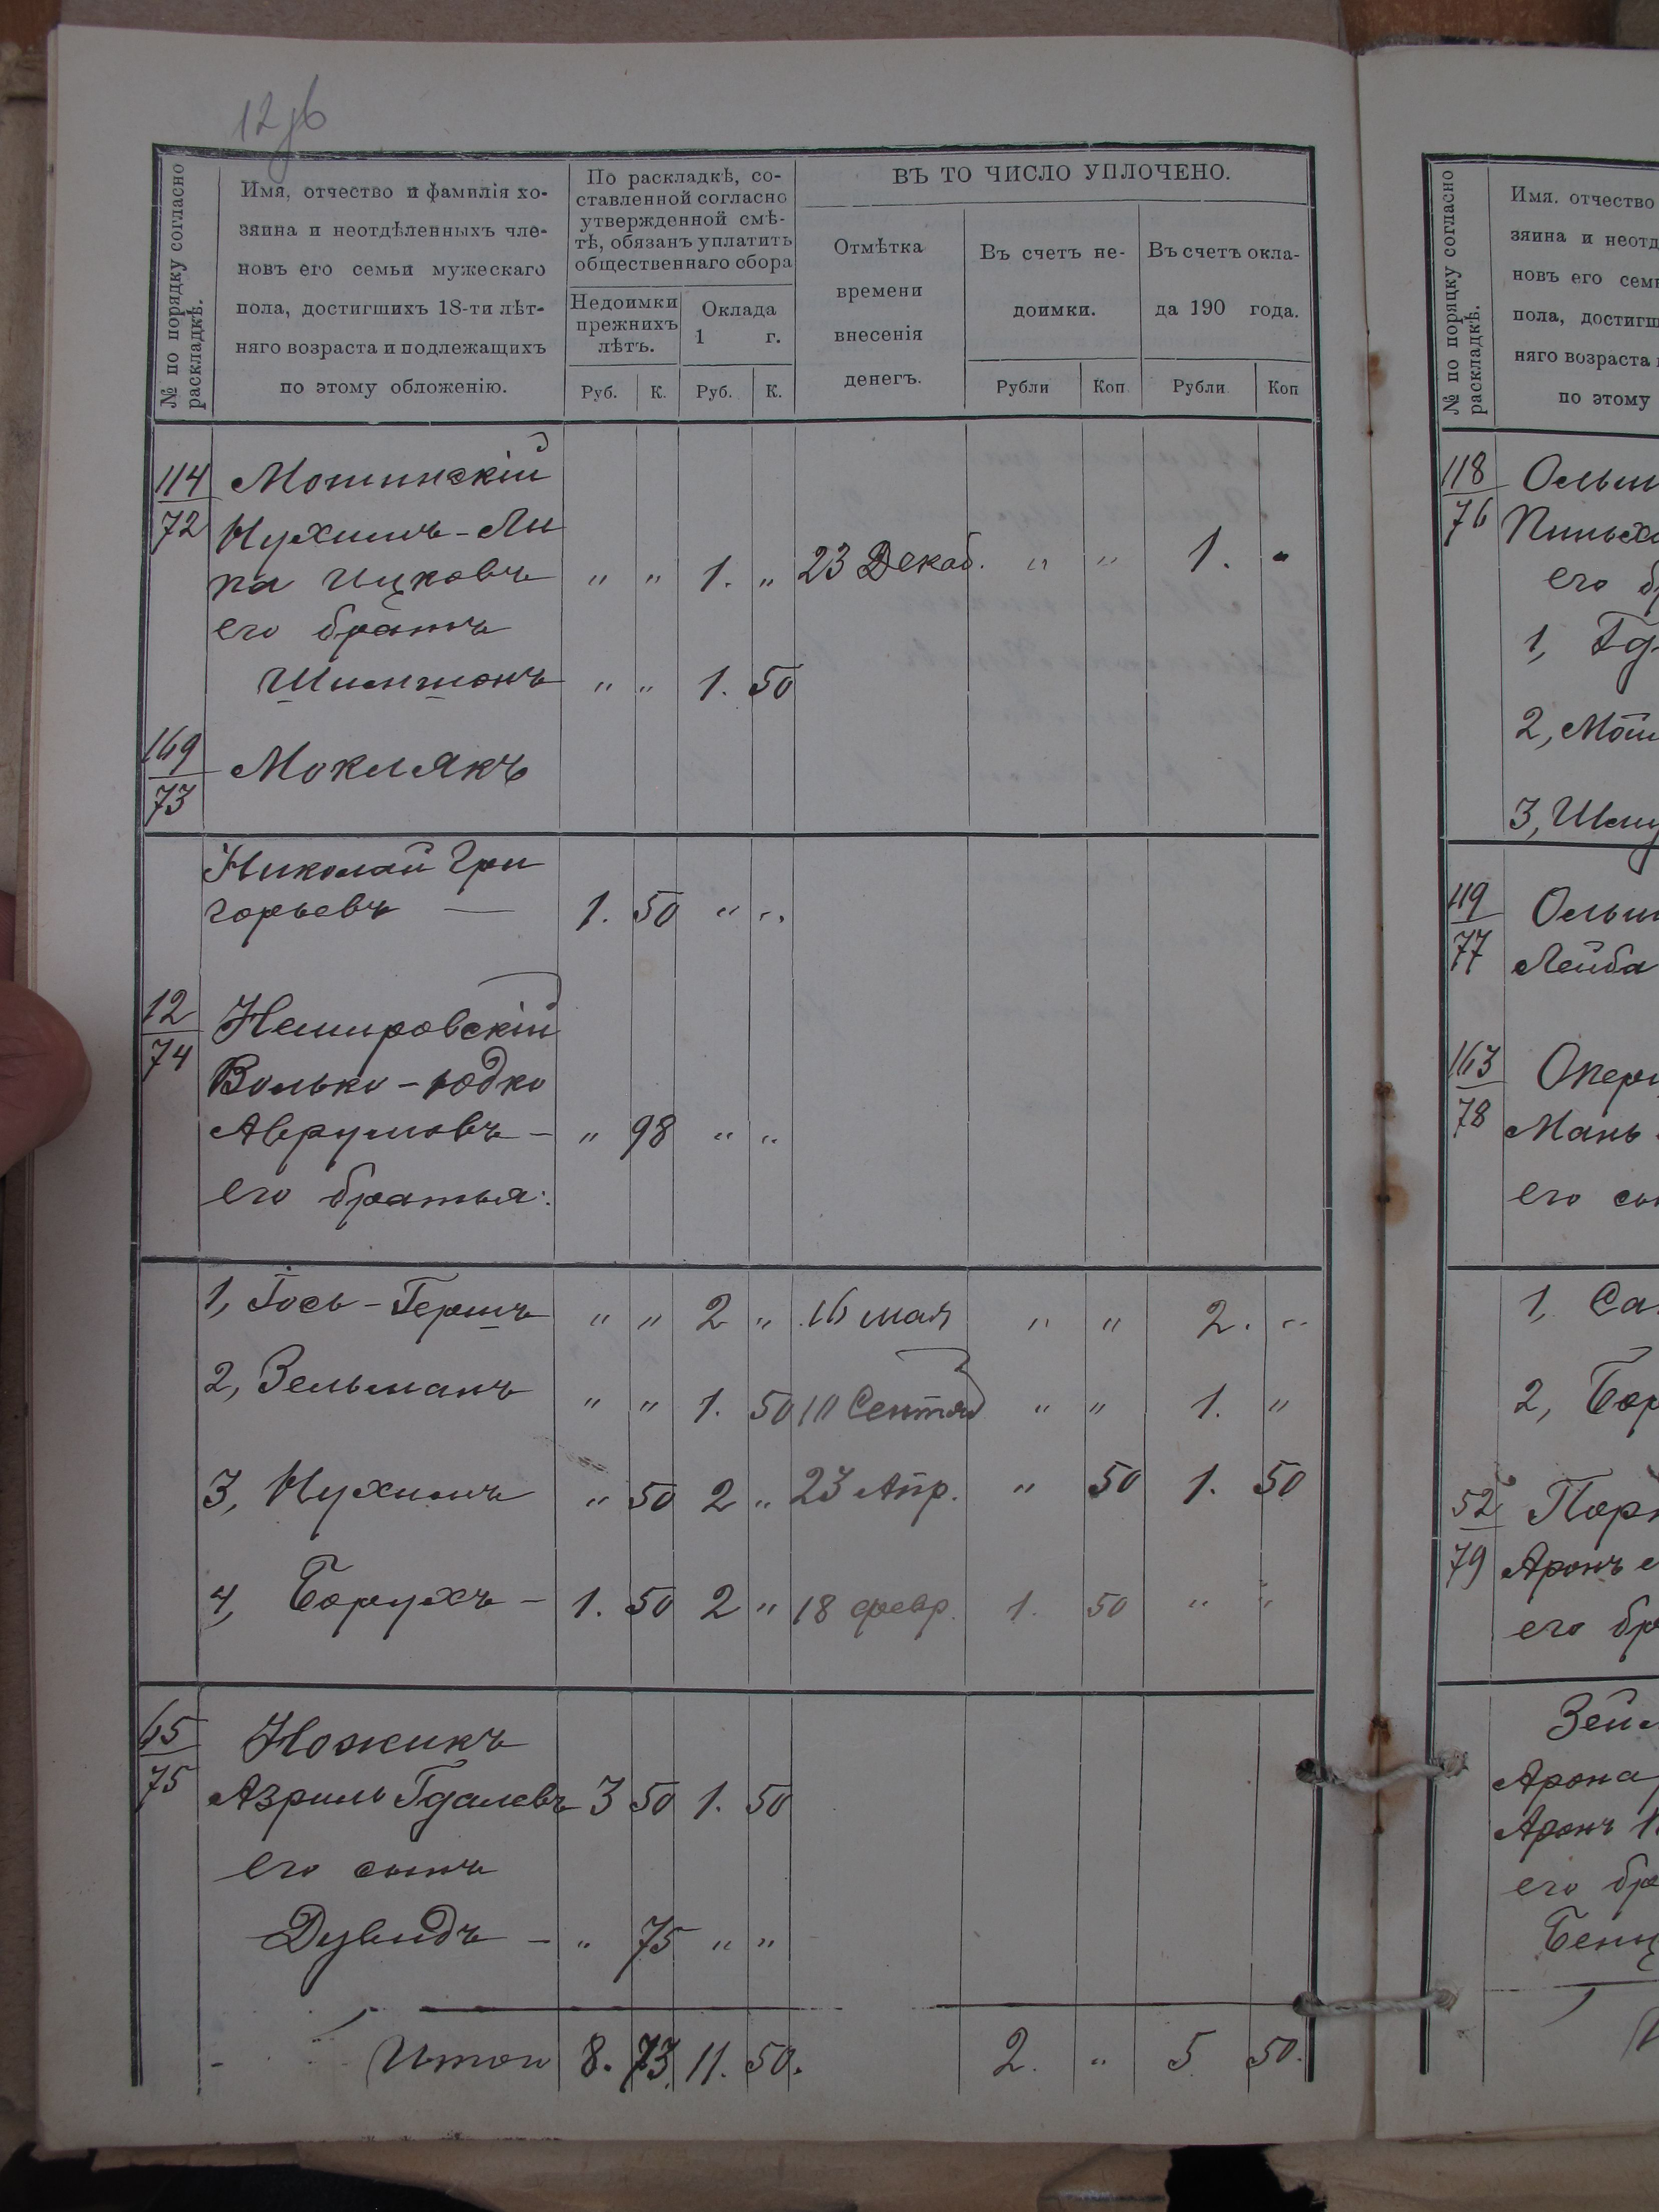 12 зв
№ по порядку согласно раскладкѣ.
Имя, отчество и фамилія хо-
зяина и неотдѣленныхъ чле-
новъ его семьи мужескаго
пола, достигшихъ 18-ти лѣт-
няго возраста и подлежащихъ
по этому обложенію.
По раскладкѣ, со-
ставленной согласно
утвержденной смѣ-
тѣ, обязанъ уплатить
общественнаго сбора
Недоимки
прежнихъ
лѣтъ.
Оклада
1 г.
Руб. К. Руб. К.
ВЪ ТО ЧИСЛО УПЛОЧЕНО.
Отмѣтка
времени
внесенія
денегъ.
Въ счетъ не-
доимки.
Въ счетъ окла-
да 190 года.
Рубли Коп. Рубли Коп
114 Мотинскій
72 Нухимъ-Ли
па Ицковъ " " 1. " 23 Декаб. " " 1. "
его братъ
Шимшонъ " " 1. 50
169 Моклякъ
73
Николай Гри
горьевъ — 1. 50 " "
12 Немировскій
74 Волько-Юдко
Аврумовъ - " 98 " "
его братья:
1, Іось-Гершъ " " 2 " 16 мая " " 2. "
2, Зельманъ " " 1. 50 10 Сентяб " " 1. "
3, Нухимъ " 50 2 " 23 Апр. " 50 1. 50
4, Борухъ - 1. 50 2 " 18 февр. 1. 50 " "
65 Ножикъ
75 Азриль Гдалевъ 3 50 1. 50
его сынъ
Дувидъ - " 75 " "
Итого 8. 73. 11. 50. 2. " 5 50.
№ по порядку согласно раскладкѣ.
Имя. отчество
зяина и неотд
новъ его сем
пола, достигш
няго возраста
по этому
118
76
его
1,
2,
3,
119
77 Лейба
163
78
его
1,
2,
52
79 Аронъ
его
Арона
Аронъ
его